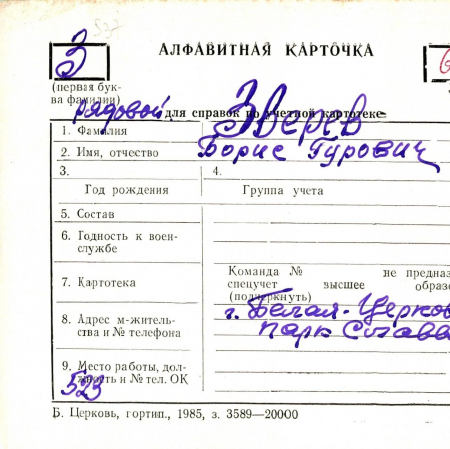 537
АЛФАВИТНАЯ КАРТОЧКА
З
(первая бук-
ва фамилии)
рядовой для справок по учетной картотеке
1. Фамилия Зверев
2. Имя, отчество Борис Гурович
3. 4.
Год рождения Группа учета
5. Состав
6. Годность к воен-
службе
7. Картотека
Команда № не предназ
спецучет высшее образо
(подчеркнуть)
8. Адрес м-житель-
ства и № телефона
г. Белая-Церков
парк
9. Место работы, дол-
жность и № тел. ОК
523
Б. Церковь, гортип., 1985, з. 3589—20000